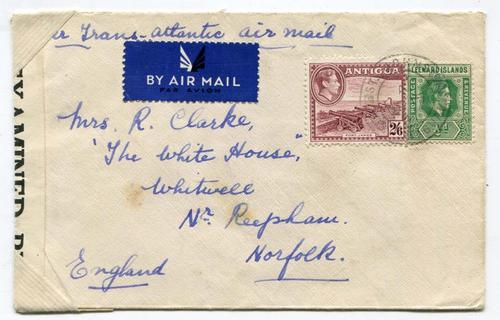 Trans-Atlantic air mail
BY AIR MAIL
PAR AVION
ANTIGUA
2/6
LEEWARD ISLANDS
POSTAGE
REVENUE
½d
Mrs. R. Clarke,
"The White House,"
Whitwell
Nr. Reepham.
Norfolk.
England